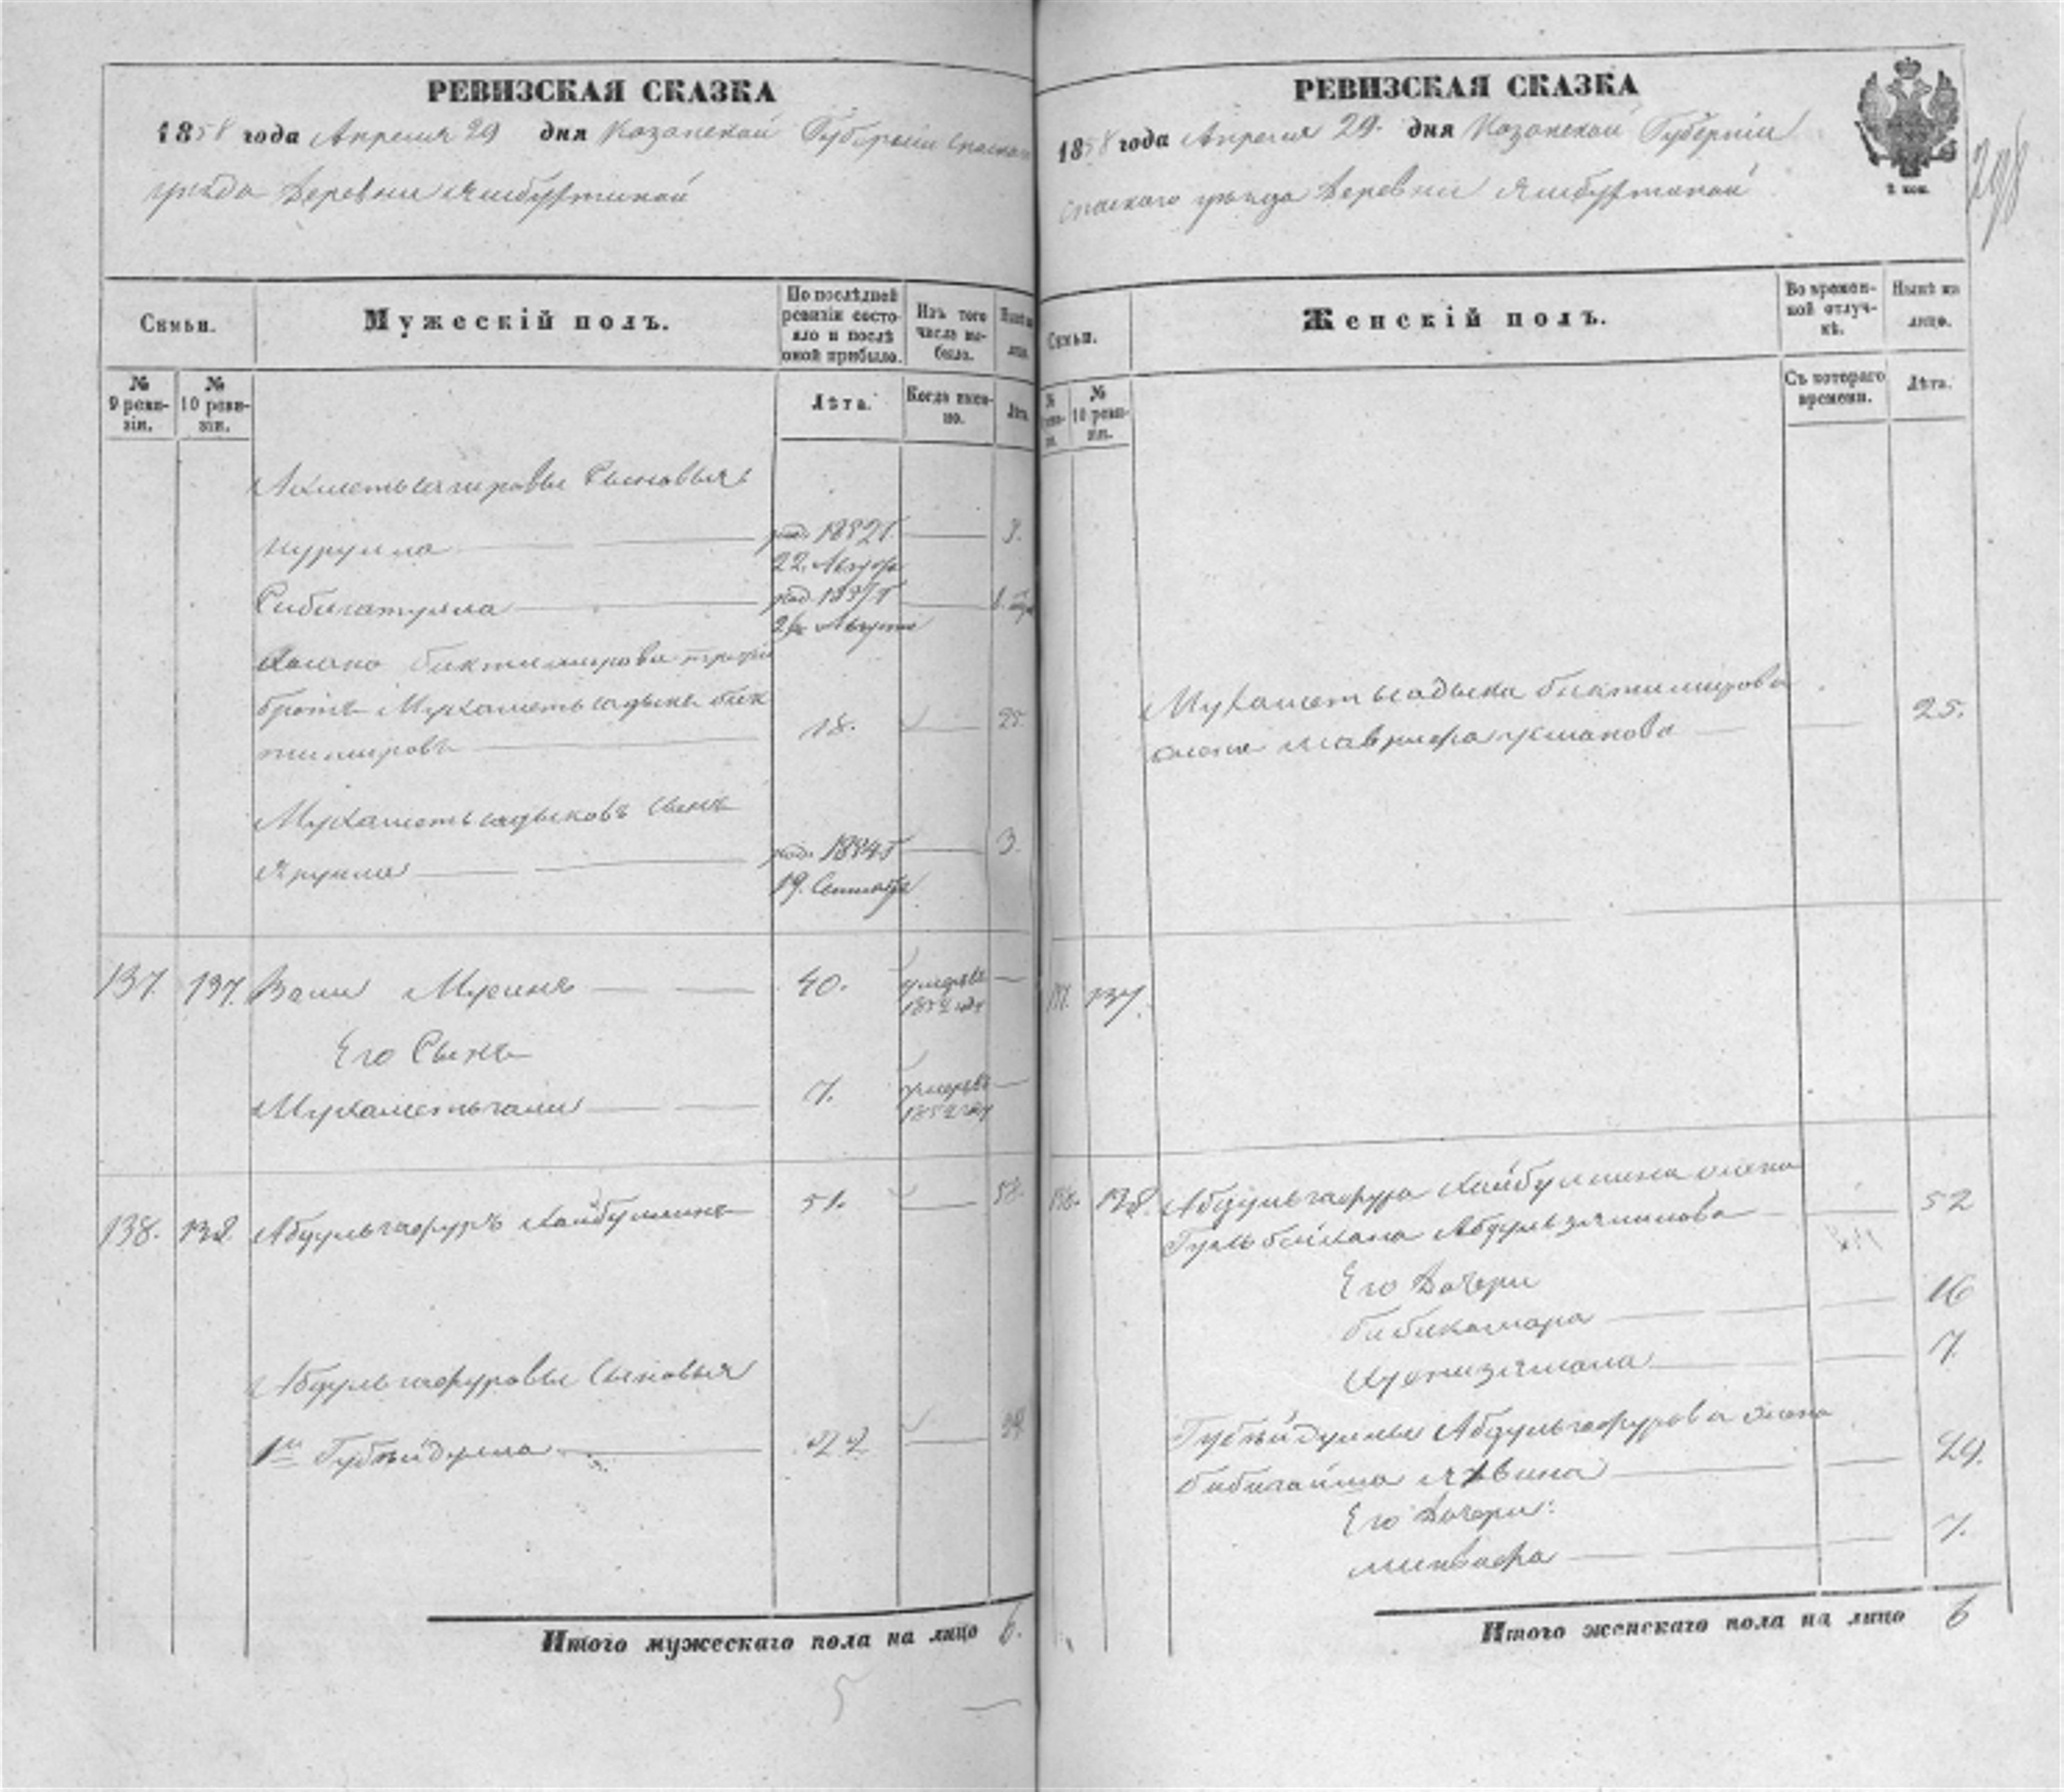 РЕВИЗСКАЯ СКАЗКА
1858 года Апреля 29 дня Казанской Губернiи Спаскаго
уѣзда Деревни Ямбухтиной
Семьи.
Мужескiй полъ.
По послѣдней ревизiи состояло и послѣ оной прибыло.
Изъ того числа выбыло.
Нынѣ на лицо.
№ 9 ревизiи.
№ 10 ревизiи.
Лѣта.
Когда именно.
Лѣта.
Ахметьсагировы Сыновья
Нурулла
род. 1852 г.
22. Августа
Сибагатулла
род. 1857 г
Августа
братъ Мухаметьсадыкъ бик
тимировъ
18.
25.
Мухаметьсадыковъ Сынъ
род. 1854 г
3.
19. Сентября
137. 137. Вали Мусинъ
40.
умеръ въ
Его Сынъ
Мухаметьгали
7.
умеръ въ
138. 138. Абдульгафуръ Хайбуллинъ
51.
Абдульгафуровы Сыновья
1й Губейдулла
22
Итого мужескаго пола на лицо 6.
5
РЕВИЗСКАЯ СКАЗКА
1858 года Апреля 29. дня Казанской Губернiи
Спаскаго уѣзда Деревни Ямбухтиной
2 коп.
Семьи.
Женскiй полъ.
Во временной отлучкѣ.
Нынѣ на лицо.
№ 10 ревизiи.
Съ котораго времени.
Лѣта.
Мухаметьсадыка биктимирова
жена Мавлифа Усманова
25.
137.
138. Абдульгафура Хайбуллина жена
Гульбайана Абдульзялилова
52
Его Дочери
бибикамара
16
Хуснизямала
7.
Губейдуллы Абдульгафурова жена
бибигайша
29.
Его Дочери:
минвафа
7.
Итого женскаго пола на лицо 6